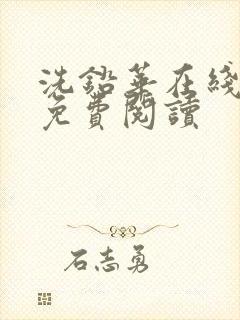 洗鉛華在綫
免費閱讀
石志勇